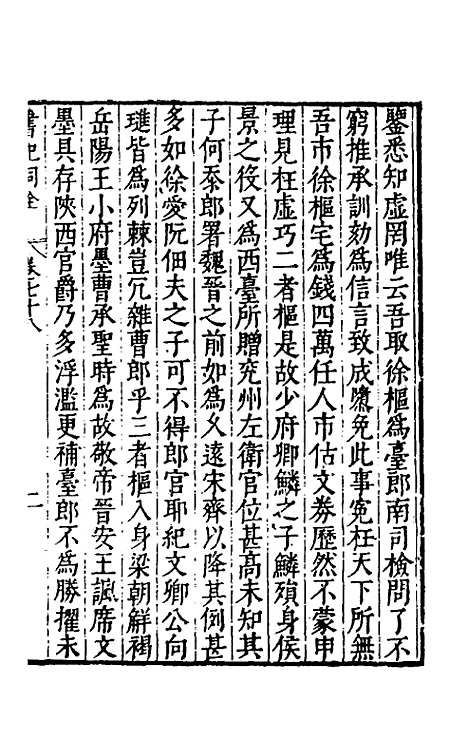 鑒悉知虛罔唯云吾取徐樞為臺郎南司檢問了不
窮推承訓劾為信言致成廢免此事冤枉天下所無
吾市徐樞宅為錢四萬任人市估文券歷然不蒙申
理見枉虛巧二者樞是故少府卿鱗之子鱗殞身侯
景之役又為西臺所贈兖州左衛官位甚高未知其
子何忝郎署魏晉之前如為久遠宋齊以降其例甚
多如徐愛阮佃夫之子可不得郎官耶紀文卿公向
璡皆為列棘豈冗雜曹郎乎三者樞入身梁朝解褐
岳陽王小府墨曹承聖時為故敬帝晉安王諷席文
墨具存陝西官爵乃多浮濫更補臺郎不為勝擢未
書記洞詮 卷七十八 二